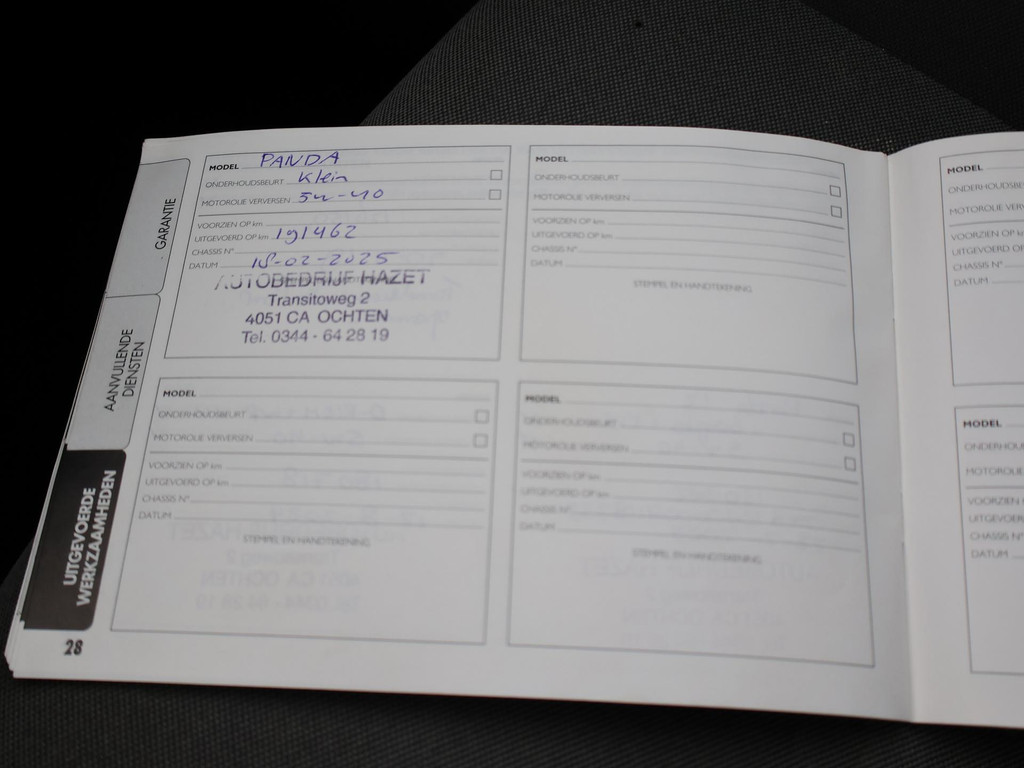 GARANTIE
AANVULLENDE
DIENSTEN
UITGEVOERDE
WERKZAAMHEDEN
28
MODEL PANDA
ONDERHOUDSBEURT Klein
MOTOROLIE VERVERSEN 5w-40
VOORZIEN OP km
UITGEVOERD OP km 191462
CHASSIS N°
DATUM 18-02-2025
AUTOBEDRIJF HAZET
Transitoweg 2
4051 CA OCHTEN
Tel. 0344 - 64 28 19
MODEL
ONDERHOUDSBEURT
MOTOROLIE VERVERSEN
VOORZIEN OP km
UITGEVOERD OP km
CHASSIS N°
DATUM
STEMPEL EN HANDTEKENING
MODEL
ONDERHOUDSBEURT
MOTOROLIE VERVERSEN
VOORZIEN OP km
UITGEVOERD OP km
CHASSIS N°
DATUM
STEMPEL EN HANDTEKENING
MODEL
ONDERHOUDSBEURT
MOTOROLIE VERVERSEN
VOORZIEN OP km
UITGEVOERD OP km
CHASSIS N°
DATUM
STEMPEL EN HANDTEKENING
MODEL
ONDERHOUDSBE
MOTOROLIE VERV
VOORZIEN OP km
UITGEVOERD OP
CHASSIS N°
DATUM
MODEL
ONDERHOU
MOTOROLIE
VOORZIEN
UITGEVOER
CHASSIS N°
DATUM